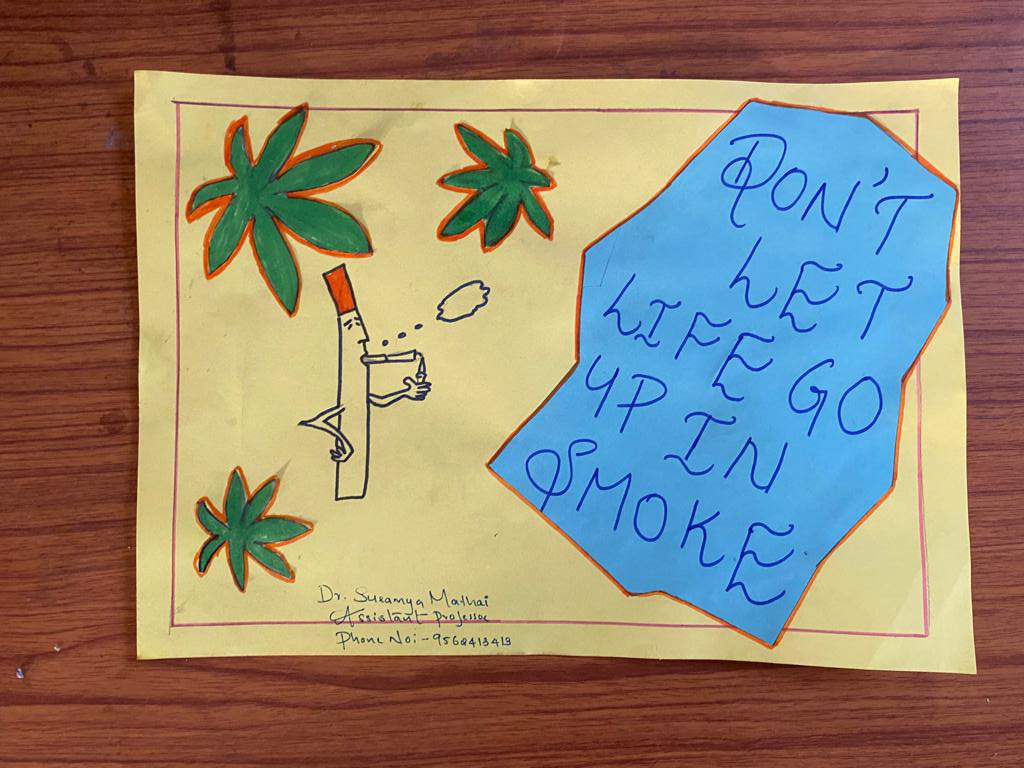 DON'T
LET
LIFE GO
UP IN
SMOKE
Dr. Suramya Mathai
Assistant Professor
Phone No:- 9562413413